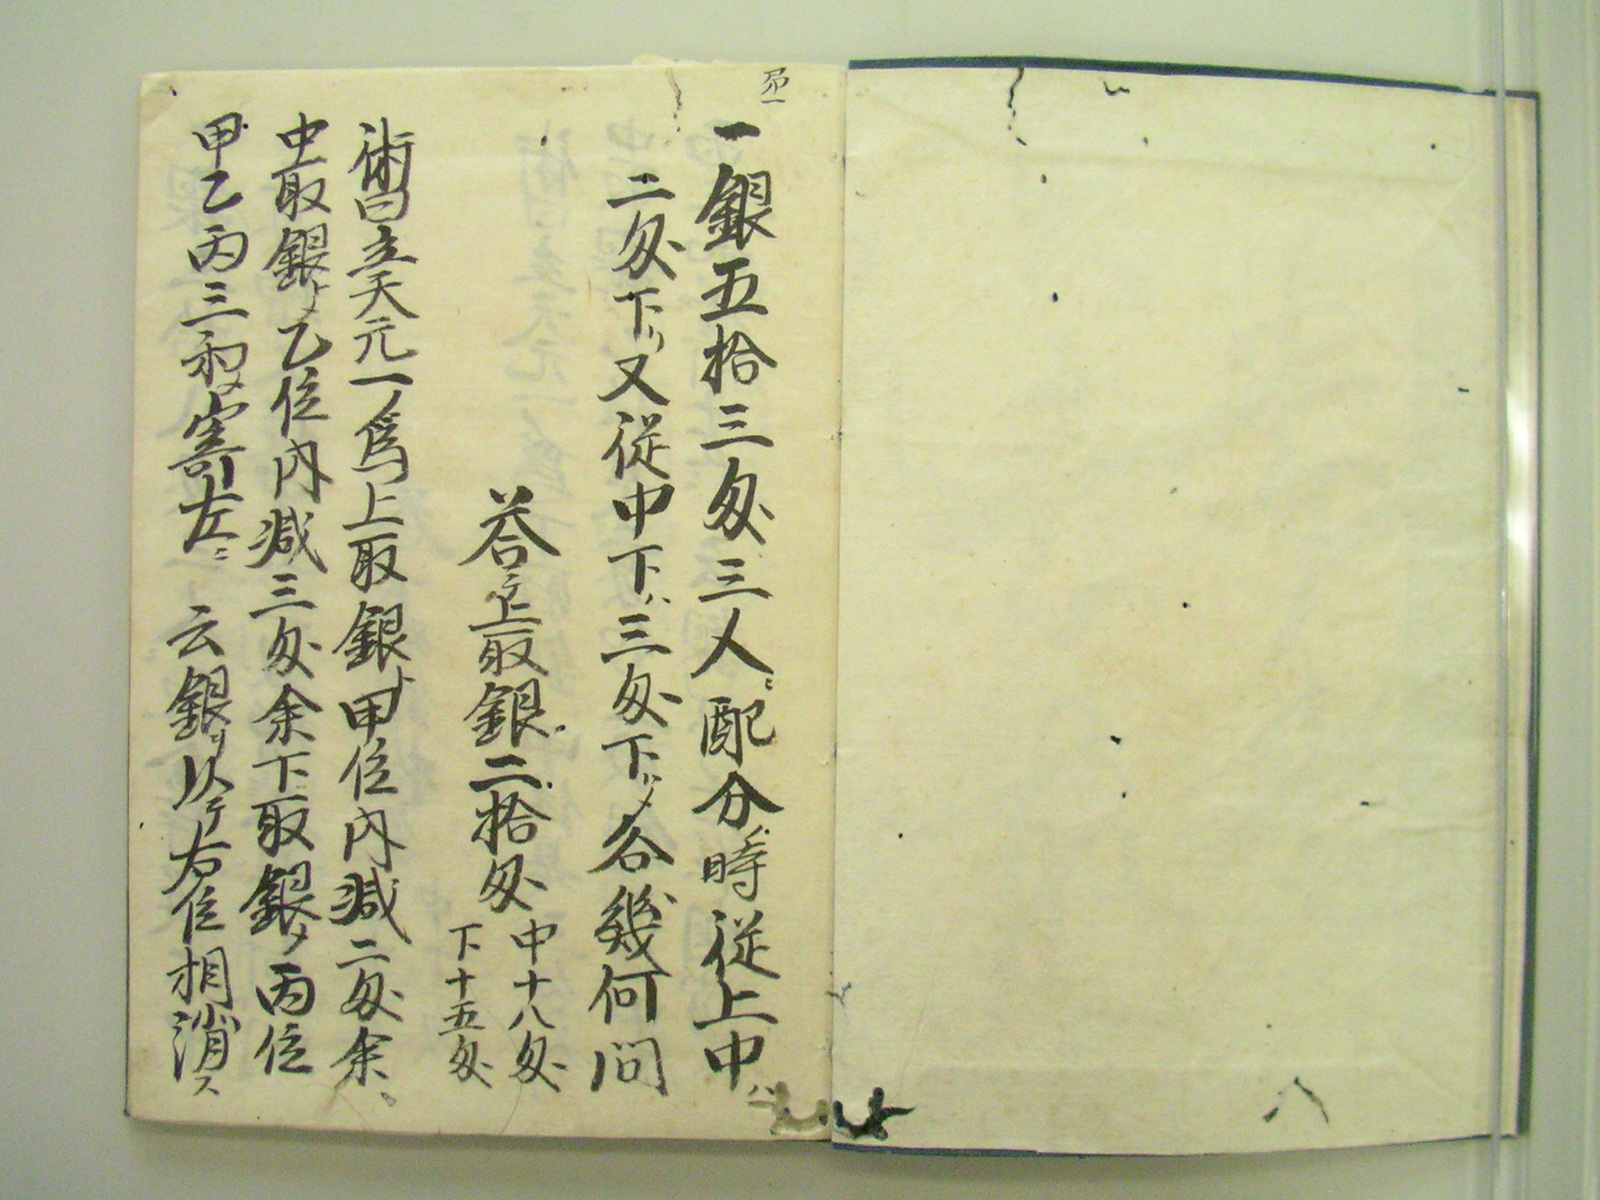 一銀五拾三匁三人ニ配分ノ時従上中ハ
二匁下リ又従中下ハ三匁下リメ各幾何問
答テ上取銀二拾匁
中十八匁
下十五匁
術曰立天元一ノ為上取銀ト甲位内減二匁余
中取銀トメ乙位内減三匁余下取銀メ丙位
甲乙丙三和メ寄左ニ云銀ヲ以テ右位相消ス